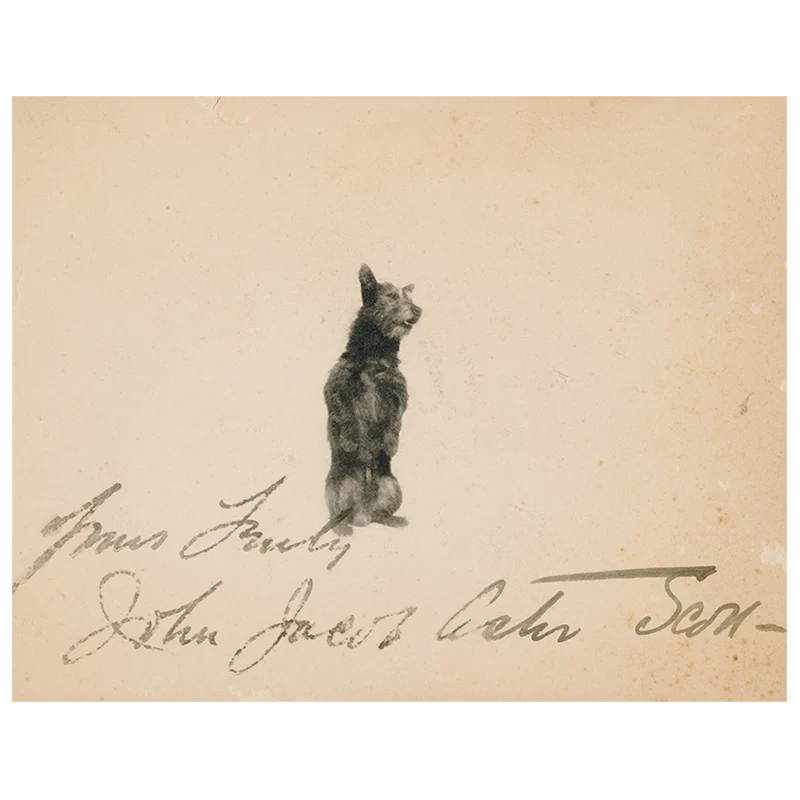 Yours Truly
John Jacob Astor Scott